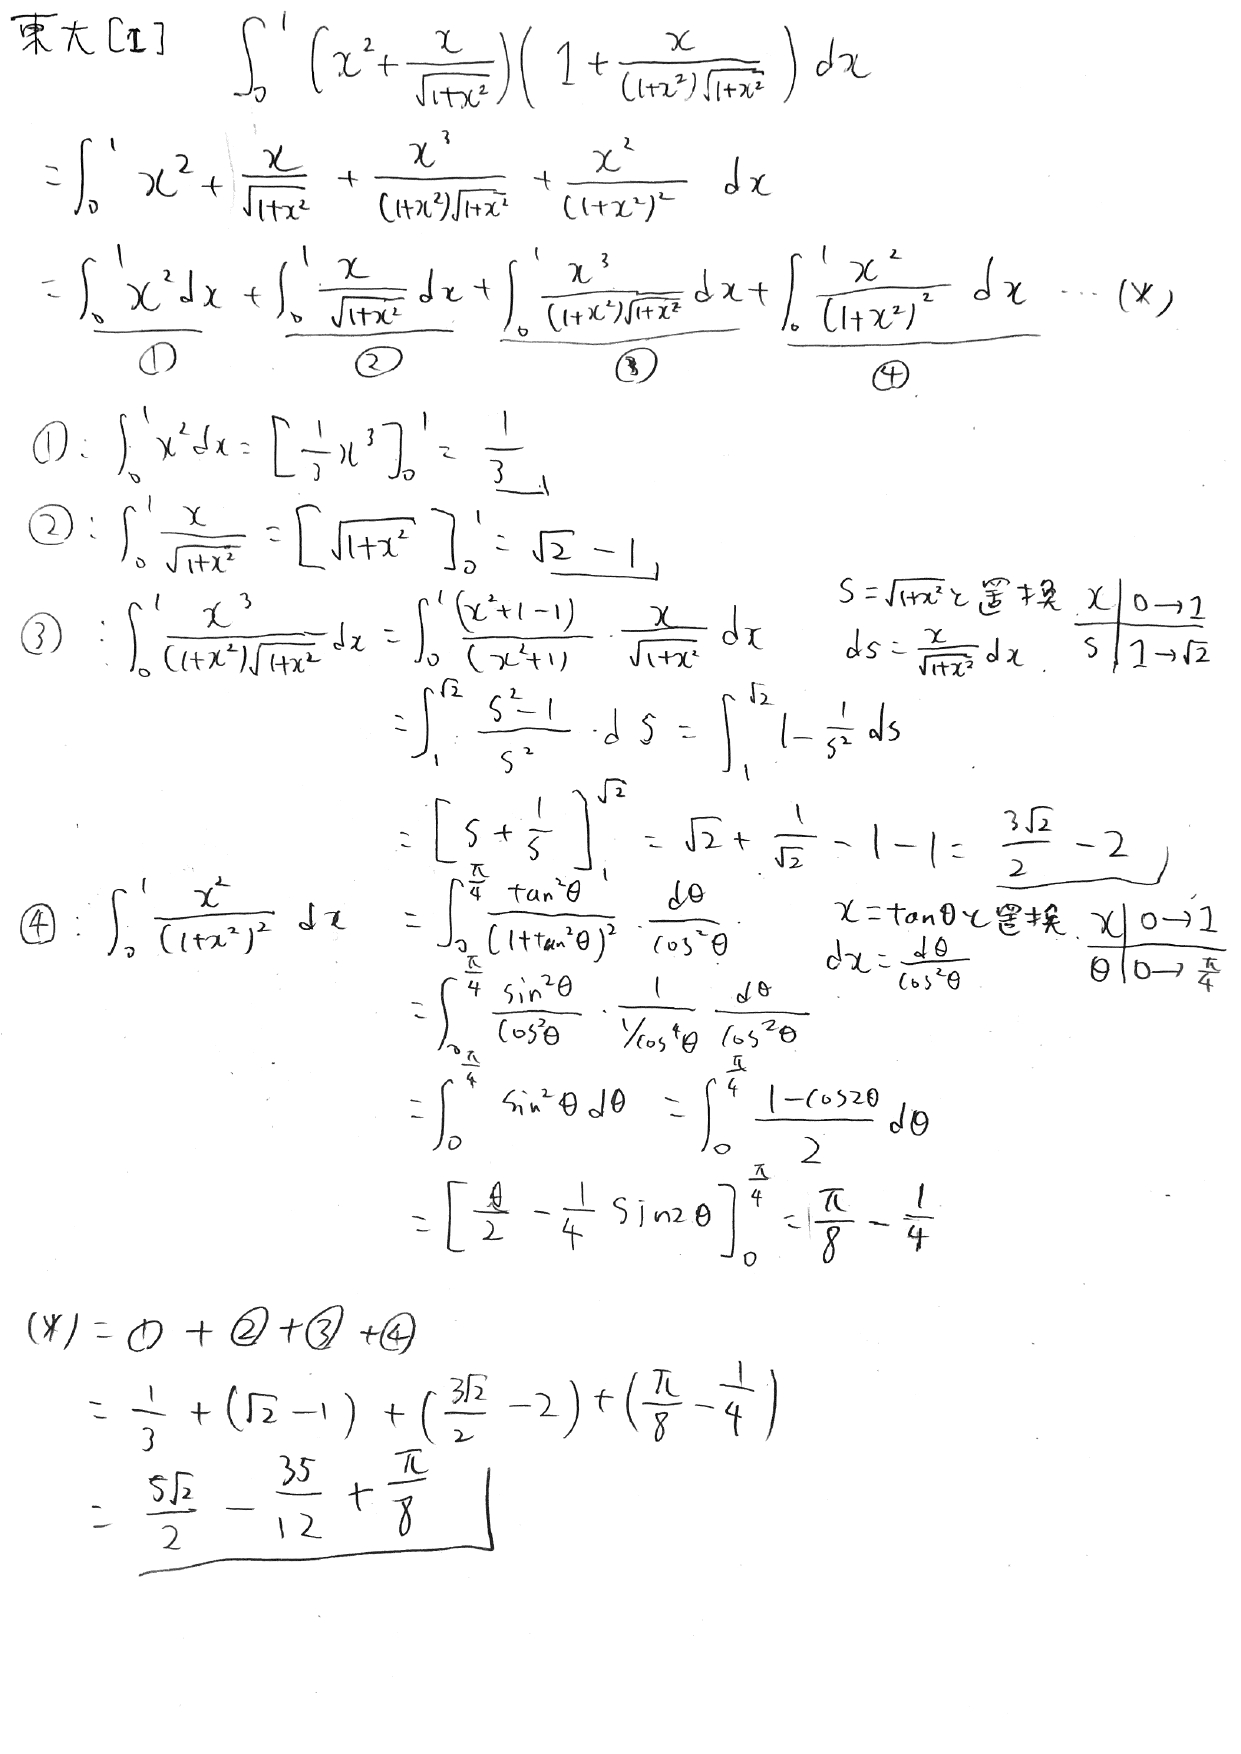 東大[1] ∫₀¹ (x² + x/√(1+x²)) (1 + x/((1+x²)√(1+x²))) dx
= ∫₀¹ x² + x/√(1+x²) + x³/((1+x²)√(1+x²)) + x²/(1+x²)² dx
= ∫₀¹ x² dx + ∫₀¹ x/√(1+x²) dx + ∫₀¹ x³/((1+x²)√(1+x²)) dx + ∫₀¹ x²/(1+x²)² dx … (*)
① ② ③ ④
①: ∫₀¹ x² dx = [1/3 x³]₀¹ = 1/3
②: ∫₀¹ x/√(1+x²) = [√(1+x²)]₀¹ = √2 − 1
③: ∫₀¹ x³/((1+x²)√(1+x²)) dx = ∫₀¹ (x²+1−1)/(x²+1) · x/√(1+x²) dx
S = √(1+x²) と置換 x | 0→1
ds = x/√(1+x²) dx. S | 1→√2
= ∫₁^√2 (S²−1)/S² · dS = ∫₁^√2 1 − 1/S² ds
= [S + 1/S]₁^√2 = √2 + 1/√2 − 1 − 1 = 3√2/2 − 2
④: ∫₀¹ x²/(1+x²)² dx = ∫₀^(π/4) tan²θ/(1+tan²θ)² · dθ/cos²θ
x = tanθ と置換. x | 0→1
dx = dθ/cos²θ θ | 0→π/4
= ∫₀^(π/4) sin²θ/cos²θ · 1/(1/cos⁴θ) dθ/cos²θ
= ∫₀^(π/4) sin²θ dθ = ∫₀^(π/4) (1−cos2θ)/2 dθ
= [θ/2 − 1/4 sin2θ]₀^(π/4) = π/8 − 1/4
(*) = ① + ② + ③ + ④
= 1/3 + (√2 − 1) + (3√2/2 − 2) + (π/8 − 1/4)
= 5√2/2 − 35/12 + π/8